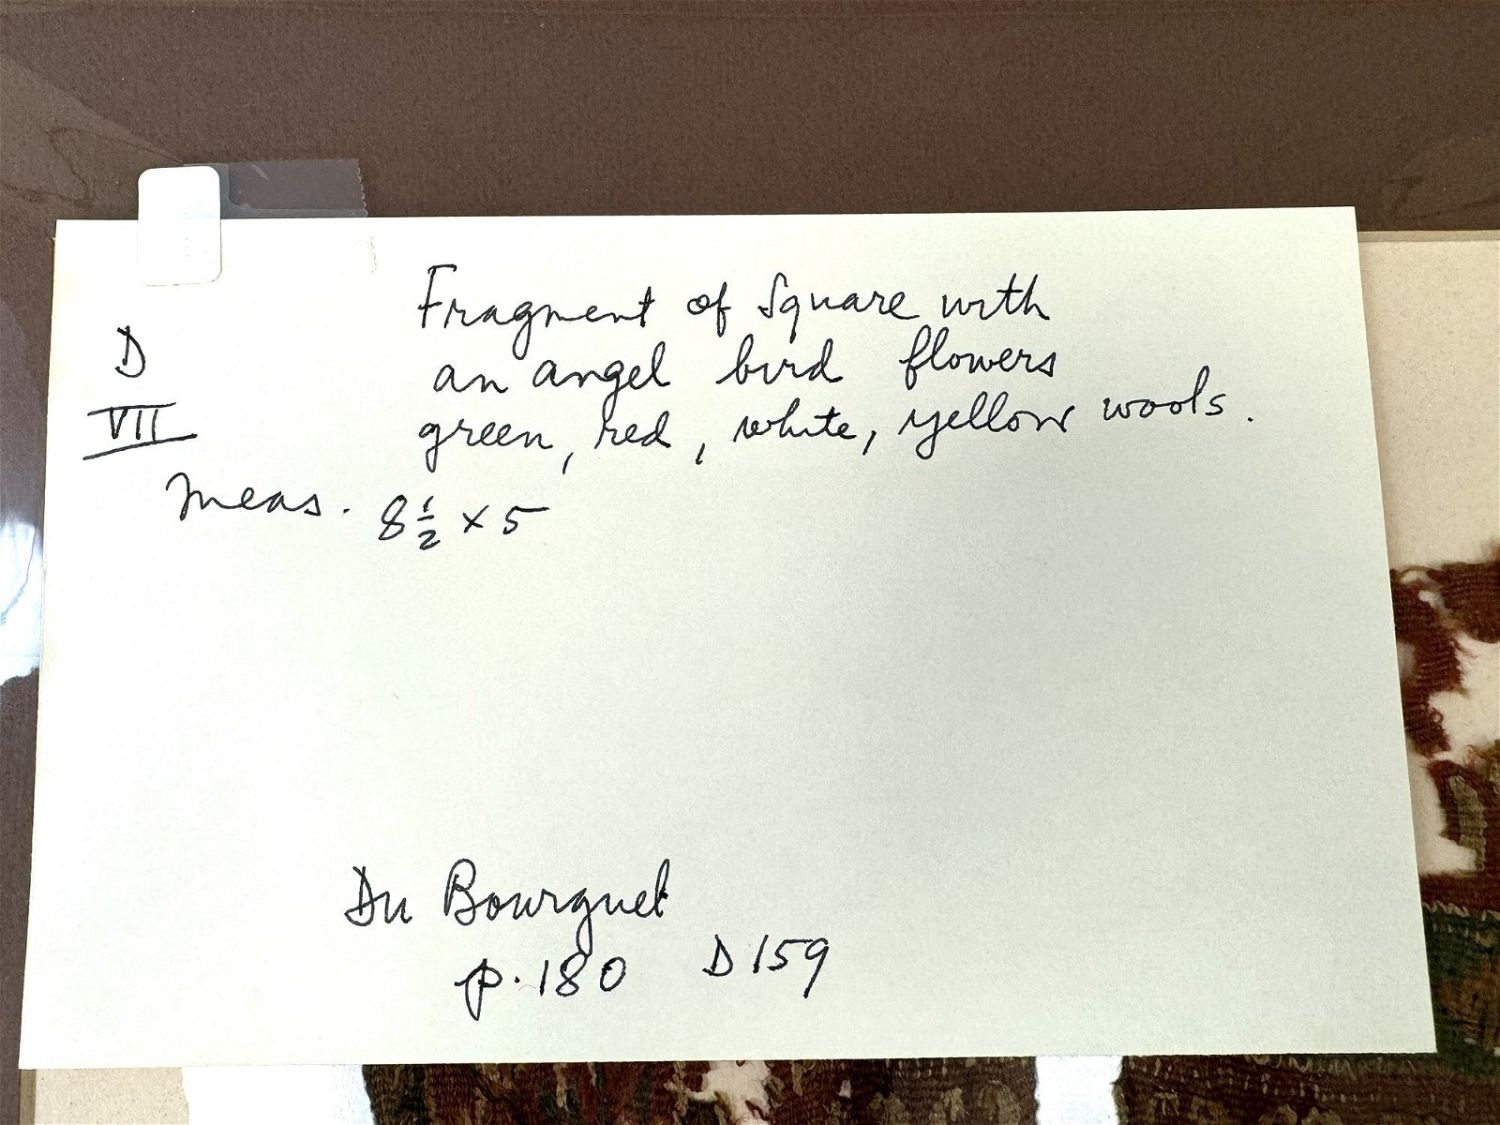 Fragment of Square with
D
an angel bird flowers
VII
green, red, white, yellow wools.
Meas. 8 1/2 x 5
Du Bourguet
p. 180 D 159